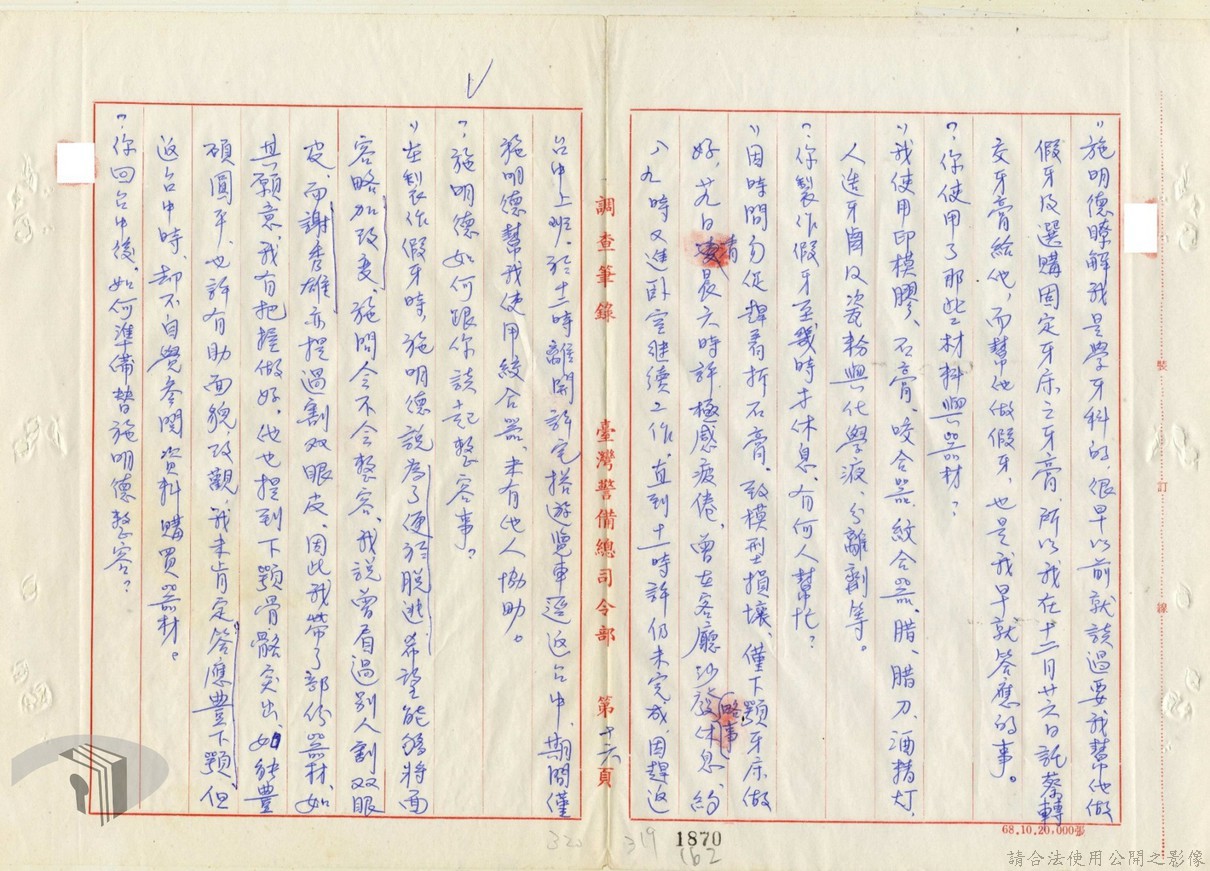 〃施明德瞭解我是學牙科的，很早以前就談過要我幫他做
假牙及選購固定牙床之牙膏，所以我在十二月廿六日託蔡轉
交牙膏給他，而幫他做假牙，也是我早就答應的事。
？你使用了那些材料與器材？
〃我使用印模膠、石膏、咬合器、絞合器、腊、腊刀、酒精灯、
人造牙齒及瓷粉與化學液、分離劑等。
？你製作假牙至幾時才休息、有何人幫忙？
〃因時間匆促趕着拆石膏、致模型損壞、僅下顎牙床做
好，廿九日清晨六時許極感疲倦，曾在客廳沙發略事休息、約
八、九時又進臥室繼續工作，直到十一時許仍未完成，因趕返
調查筆錄 臺灣警備總司令部 第十六頁
台中上班，於十二時離開許宅搭遊覽車逕返台中、期間僅
施明德幫我使用絞合器、未有他人協助。
？施明德如何跟你談起整容事？
〃在製作假牙時，施明德說為了便於脫逃希望能夠將面
容略加改变，施問会不会整容，我說曾看過別人割双眼
皮，而謝秀雄亦提過割双眼皮，因此我帶了部份器材，如
其願意，我有把握做好，他也提到下顎骨骼突出，如能豊
碩圓平，也許有助面貌改觀，我未肯定答應豊下顎，但
返台中時，却不自覺參閱資料購買器材。
？你回台中後，如何準備替施明德整容？
裝
訂
線
68.10.20,000張
320
319
1870
162
請合法使用公開之影像